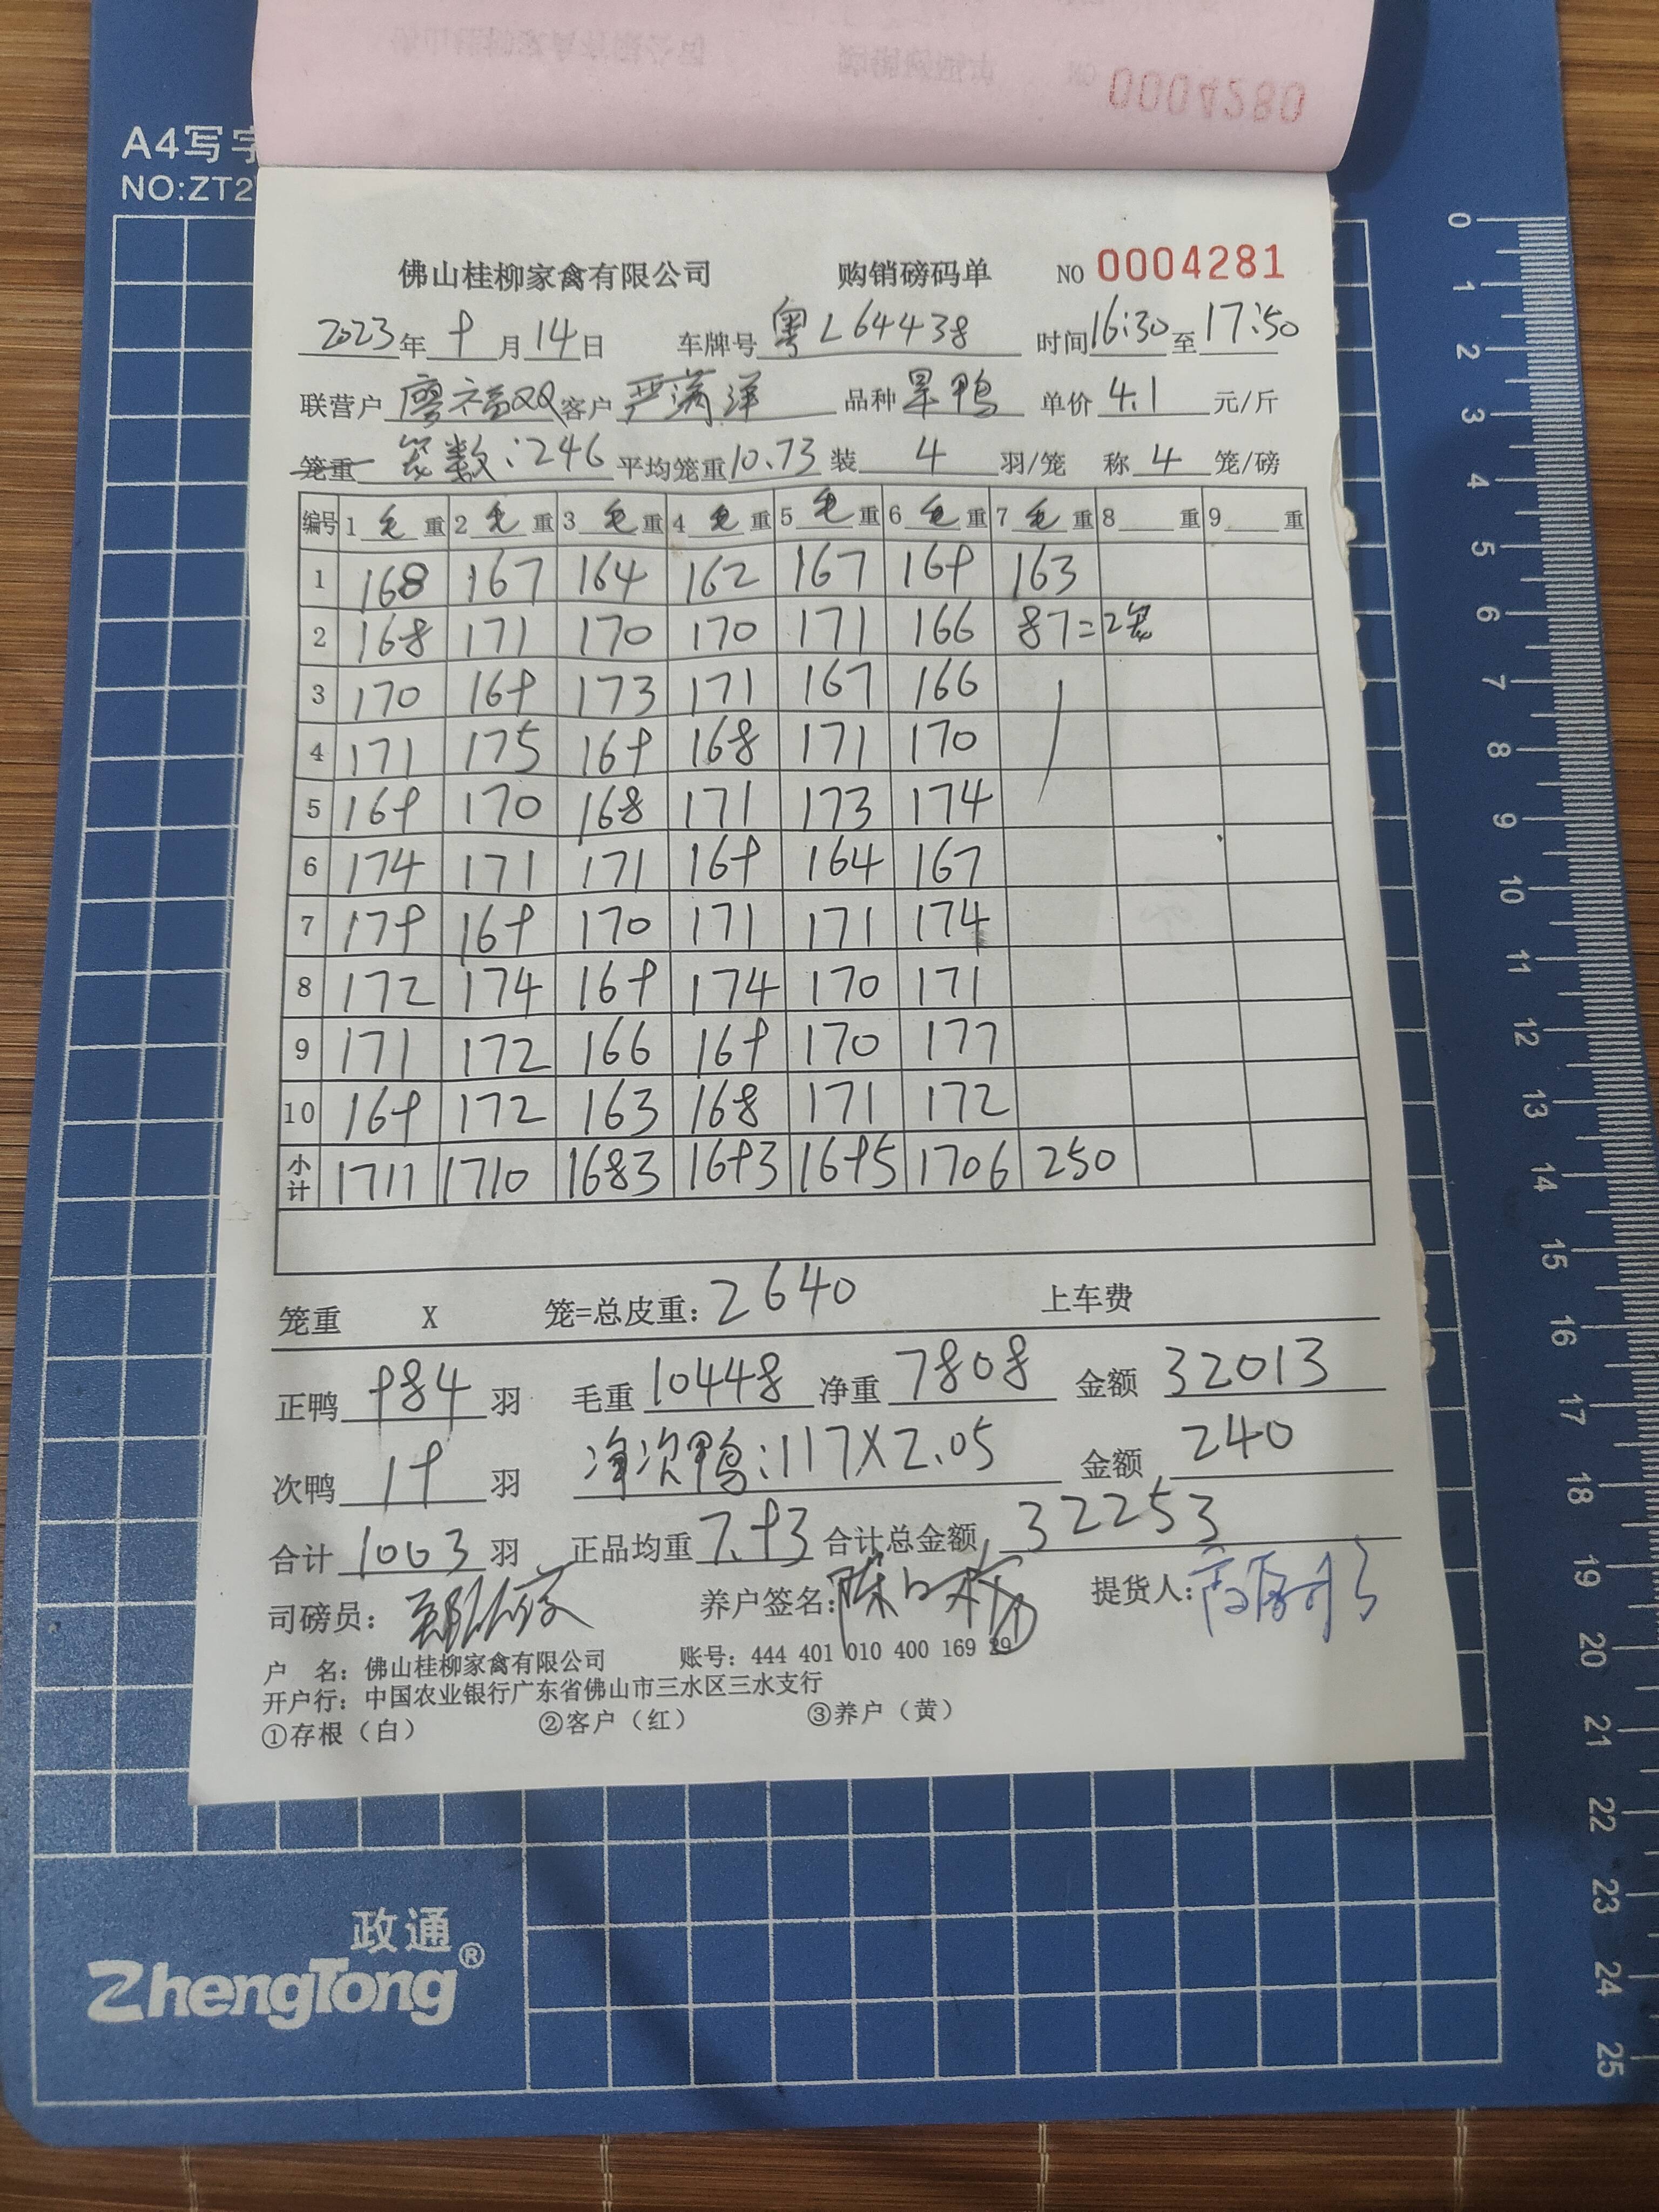 0004280
A4写字
NO:ZT2
佛山桂柳家禽有限公司 购销磅码单 NO 0004281
2023年 9月14日 车牌号 粤L64438 时间16:30至17:50
联营户 廖福欢 客户 严满洋 品种 旱鸭 单价 4.1 元/斤
笼重 笼数:246 平均笼重10.73 装 4 羽/笼 称 4 笼/磅
编号 1毛重 2毛重 3毛重 4毛重 5毛重 6毛重 7毛重 8 重 9 重
1 168 167 164 162 167 169 163
2 168 171 170 170 171 166 87=2笼
3 170 169 173 171 167 166
4 171 175 169 168 171 170
5 169 170 168 171 173 174
6 174 171 171 169 164 167
7 179 169 170 171 171 174
8 172 174 169 174 170 171
9 171 172 166 169 170 177
10 169 172 163 168 171 172
小计 1711 1710 1683 1693 1695 1706 250
笼重 X 笼=总皮重: 2640 上车费
正鸭 984 羽 毛重 10448 净重 7808 金额 32013
次鸭 19 羽 净次鸭:117X2.05 金额 240
合计 1003 羽 正品均重 7.93 合计总金额 32253
司磅员: 养户签名: 提货人:
户 名: 佛山桂柳家禽有限公司 账号: 444 401 010 400 169 29
开户行: 中国农业银行广东省佛山市三水区三水支行
①存根（白） ②客户（红） ③养户（黄）
政通®
ZhengTong
0
1
2
3
4
5
6
7
8
9
10
11
12
13
14
15
16
17
18
19
20
21
22
23
24
25